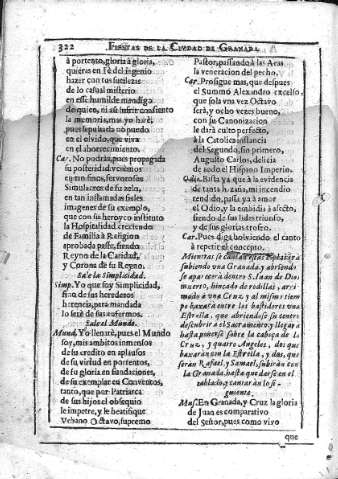 322 FIESTAS DE LA CIUDAD DE GRANADA
à portento, gloria à gloria,
quiera en Fè del ingenio
hazer con tus sutilezas
de lo casual misterio
en esse humilde mendigo
de quien, ni aũ sufrir consiento
la memoria, mas yo harè,
pues sepultada no puedo
en el olvido, que viva
en el aborrecimiento.
Car. No podràs, pues propagada
su posteridad veremos
en tus fines, servorosos
Simulacros de su zelo,
en tan inflamadas fieles
imagenes de su exemplo,
que con su heroyco instituto
la Hospitalidad creciendo
de Familia à Religion
aprobada passe, siendo
Reyno de la Caridad,
y Corona de su Reyno.
Sale la Simplicidad.
Simp. Yo que soy Simplicidad,
sino de sus herederos
herencia, para mandada
lo serè de sus enfermos.
Sale el Mundo.
Mund. Yo llenarè, pues el Mundo
soy, mis ambitos inmensos
de su credito en aplausos
de su virtud en portentos,
de su gloria en fundaciones,
de su exemplar en Conventos,
tanto, que por Patriarca
de sus hijos el obsequio
le impetre, y le beatifique
Vrbano Octavo, supremo
Pastor, passando à las Aras
la veneracion del pecho.
Car. Prosigue mas, que despues
el Summo Alexandro excelso,
que sola vna vez Octavo
serà, y ocho vezes bueno,
con su Canonizacion
le darà culto perfecto,
à la Catolica instancia
del Segundo, sin primero,
Augusto Carlos, delicia
de todo el Hispano Imperio.
Odio. Basta ya que à la evidencia
de tanta hazaña, mi incendio
rendido, passa ya à amor
el Odio, y la embidia à afecto,
siendo de sus lides triunfo,
y de sus glorias trofeo.
Car. Pues diga bolviendo el canto
à repetir el concepto.
Mientras se cantan estas coplas irà
subiendo vna Granada, y abriendo
se aparecerà dentro S. Iuan de Dios
muerto, hincado de rodillas, arri-
mado à vna Cruz, y al mismo tiem
po baxarà entre los bastidores vna
Estrella, que abriendose su centro
descubrirà el Sacramento, y llegarà
hasta ponerse sobre la cabeça de la
Cruz, y quatro Angeles, dos que
baxaràn con la Estrella, y dos, que
seràn Rafael, y Samael, subiràn con
la Granada, hasta quedarse en el
tablado, y cantaràn lo si-
guiente.
Mus. En Granada, y Cruz la gloria
de Juan es comparativo
del Señor, pues como vivo
que